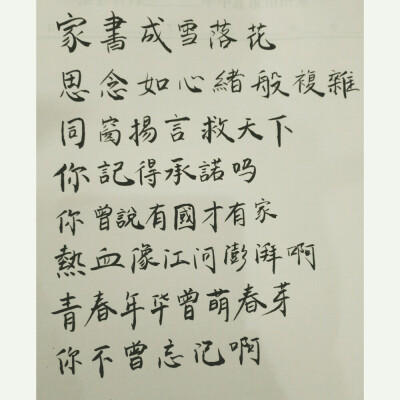 家書成雪落花
思念如心緒般複雜
同窗揚言救天下
你記得承諾吗
你曾說有國才有家
熱血像江河澎湃啊
青春年华曾萌春芽
你不曾忘记啊